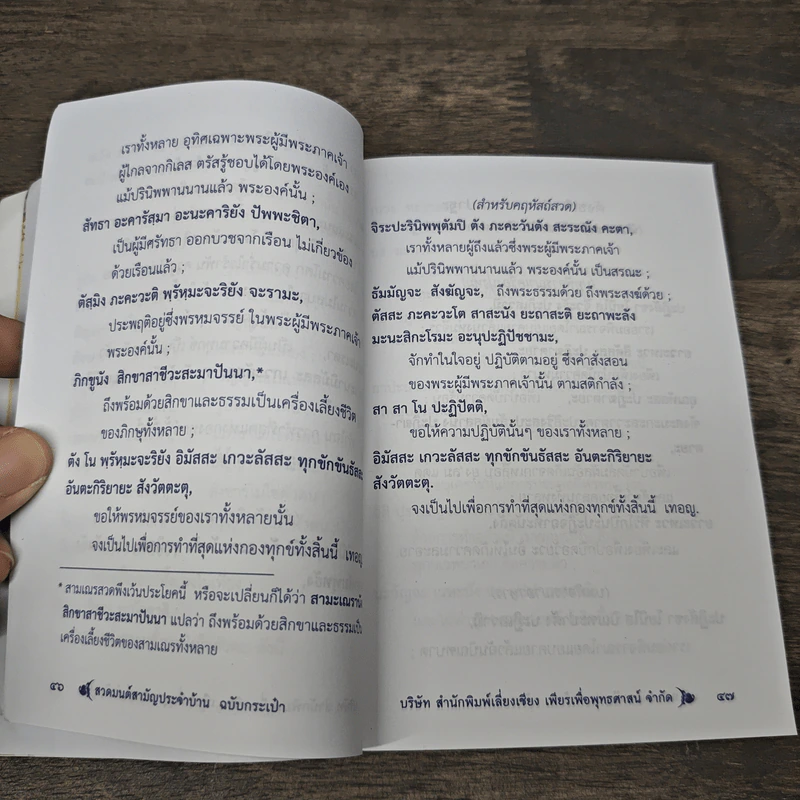 เราทั้งหลาย อุทิศเฉพาะพระผู้มีพระภาคเจ้า
ผู้ไกลจากกิเลส ตรัสรู้ชอบได้โดยพระองค์เอง
แม้ปรินิพพานนานแล้ว พระองค์นั้น ;
สัทธา อะคารัสฺมา อะนะคาริยัง ปัพพะชิตา,
เป็นผู้มีศรัทธา ออกบวชจากเรือน ไม่เกี่ยวข้อง
ด้วยเรือนแล้ว ;
ตัสฺมิง ภะคะวะติ พฺรัหฺมะจะริยัง จะรามะ,
ประพฤติอยู่ซึ่งพรหมจรรย์ ในพระผู้มีพระภาคเจ้า
พระองค์นั้น ;
ภิกขูนัง สิกขาสาชีวะสะมาปันนา,*
ถึงพร้อมด้วยสิกขาและธรรมเป็นเครื่องเลี้ยงชีวิต
ของภิกษุทั้งหลาย ;
ตัง โน พฺรัหฺมะจะริยัง อิมัสสะ เกวะลัสสะ ทุกขักขันธัสสะ
อันตะกิริยายะ สังวัตตะตุ,
ขอให้พรหมจรรย์ของเราทั้งหลายนั้น
จงเป็นไปเพื่อการทำที่สุดแห่งกองทุกข์ทั้งสิ้นนี้ เทอญ.
* สามเณรสวดพึงเว้นประโยคนี้ หรือจะเปลี่ยนก็ได้ว่า สามะเณรานัง
สิกขาสาชีวะสะมาปันนา แปลว่า ถึงพร้อมด้วยสิกขาและธรรมเป็น
เครื่องเลี้ยงชีวิตของสามเณรทั้งหลาย
๔๖ สวดมนต์สามัญประจำบ้าน ฉบับกระเป๋า
(สำหรับคฤหัสถ์สวด)
จิระปะรินิพพุตัมปิ ตัง ภะคะวันตัง สะระณัง คะตา,
เราทั้งหลายผู้ถึงแล้วซึ่งพระผู้มีพระภาคเจ้า
แม้ปรินิพพานนานแล้ว พระองค์นั้น เป็นสรณะ ;
ธัมมัญจะ สังฆัญจะ, ถึงพระธรรมด้วย ถึงพระสงฆ์ด้วย ;
ตัสสะ ภะคะวะโต สาสะนัง ยะถาสะติ ยะถาพะลัง
มะนะสิกะโรมะ อะนุปะฏิปัชชามะ,
จักทำในใจอยู่ ปฏิบัติตามอยู่ ซึ่งคำสั่งสอน
ของพระผู้มีพระภาคเจ้านั้น ตามสติกำลัง ;
สา สา โน ปะฏิปัตติ,
ขอให้ความปฏิบัตินั้นๆ ของเราทั้งหลาย ;
อิมัสสะ เกวะลัสสะ ทุกขักขันธัสสะ อันตะกิริยายะ
สังวัตตะตุ.
จงเป็นไปเพื่อการทำที่สุดแห่งกองทุกข์ทั้งสิ้นนี้ เทอญ.
บริษัท สำนักพิมพ์เลี่ยงเชียง เพียรเพื่อพุทธศาสน์ จำกัด ๔๗